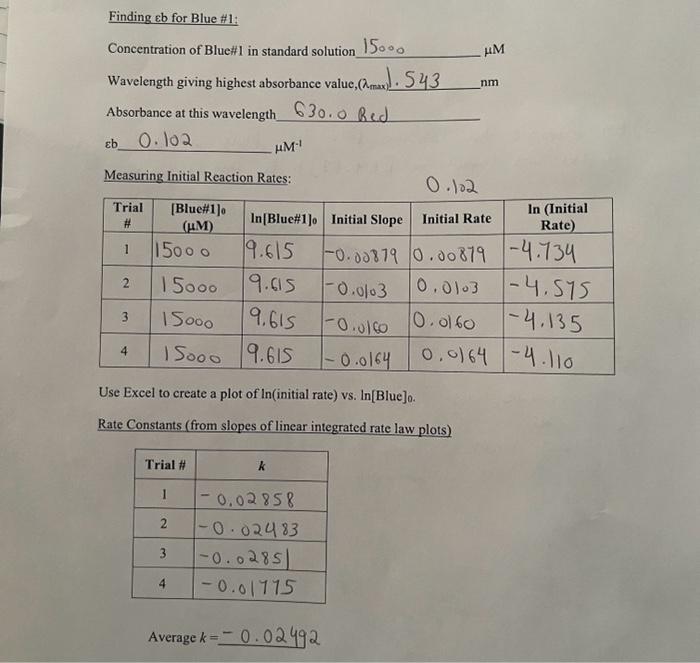 Finding εb for Blue #1:
Concentration of Blue#1 in standard solution 15000 µM
Wavelength giving highest absorbance value,(λmax) 1.543 nm
Absorbance at this wavelength 630.0 Red
εb 0.102 µM-1
Measuring Initial Reaction Rates:
0.102
Trial # [Blue#1]0 (µM) ln[Blue#1]0 Initial Slope Initial Rate ln (Initial Rate)
1 15000 9.615 -0.00879 0.00879 -4.734
2 15000 9.615 -0.0103 0.0103 -4.575
3 15000 9.615 -0.0160 0.0160 -4.135
4 15000 9.615 -0.0164 0.0164 -4.110
Use Excel to create a plot of ln(initial rate) vs. ln[Blue]0.
Rate Constants (from slopes of linear integrated rate law plots)
Trial # k
1 -0.02858
2 -0.02483
3 -0.02851
4 -0.01775
Average k = -0.02492